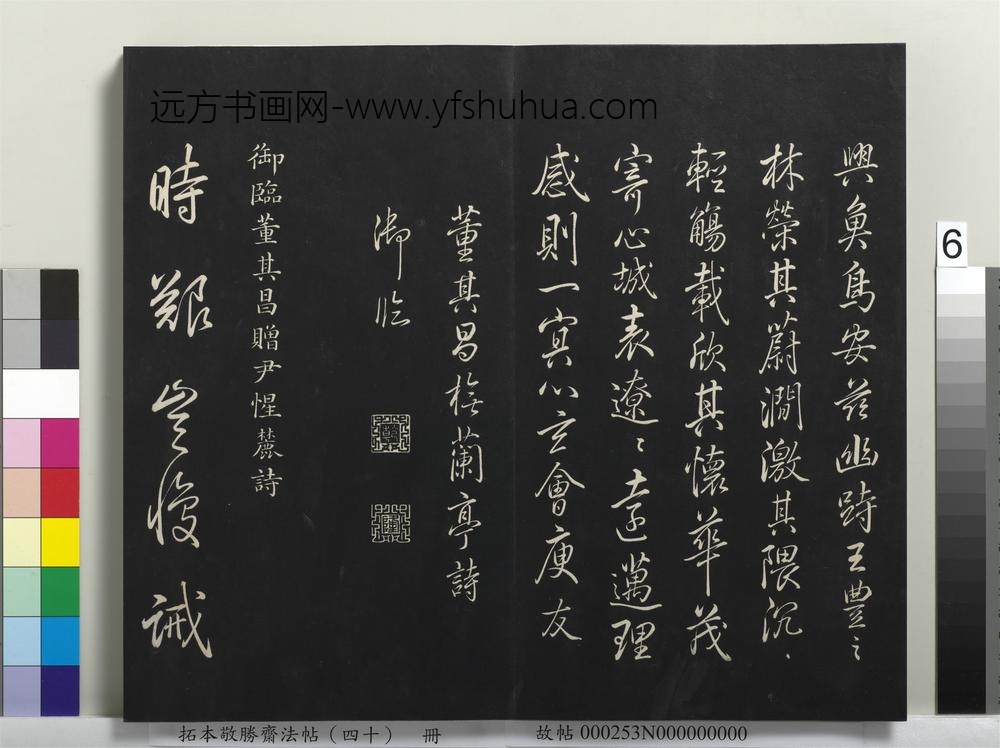 远方书画网-www.yfshuhua.com
興魚鳥安茲幽跱王豐之
林榮其蔚澗激其隈沉〻
輕觴載欣其懷華茂
寄心城表遼〻遠邁理
感則一冥心玄會庾友
董其昌橅蘭亭詩
御臨
御臨董其昌贈尹惺麓詩
時艱豈復誡
6
拓本敬勝齋法帖（四十） 冊
故帖 000253N000000000